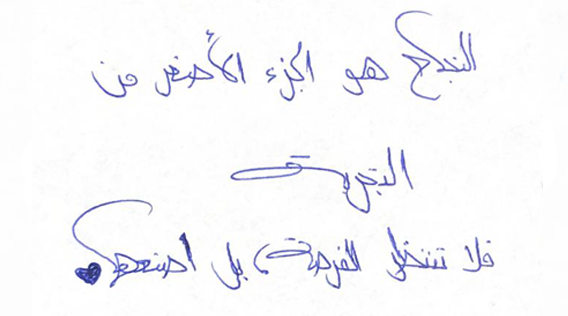 النجاح هو الجزء الأصغر من
التجربة
فلا تنتظر الفرصة، بل اصنعها